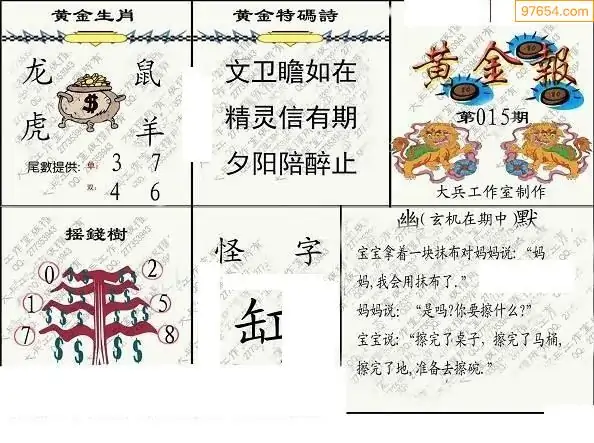 97654.com
黄金生肖
龙 鼠
虎 羊
尾數提供: 单: 3 7
双: 4 6
黄金特碼詩
文卫瞻如在
精灵信有期
夕阳陪醉止
黄金報
第015期
大兵工作室制作
摇錢樹
0 2
1 5
7 8
怪 字
缸
幽(玄机在期中)默
宝宝拿着一块抹布对妈妈说:“妈
妈,我会用抹布了.”
妈妈说: “是吗?你要擦什么?”
宝宝说:“擦完了桌子, 擦完了马桶,
擦完了地,准备去擦碗.”